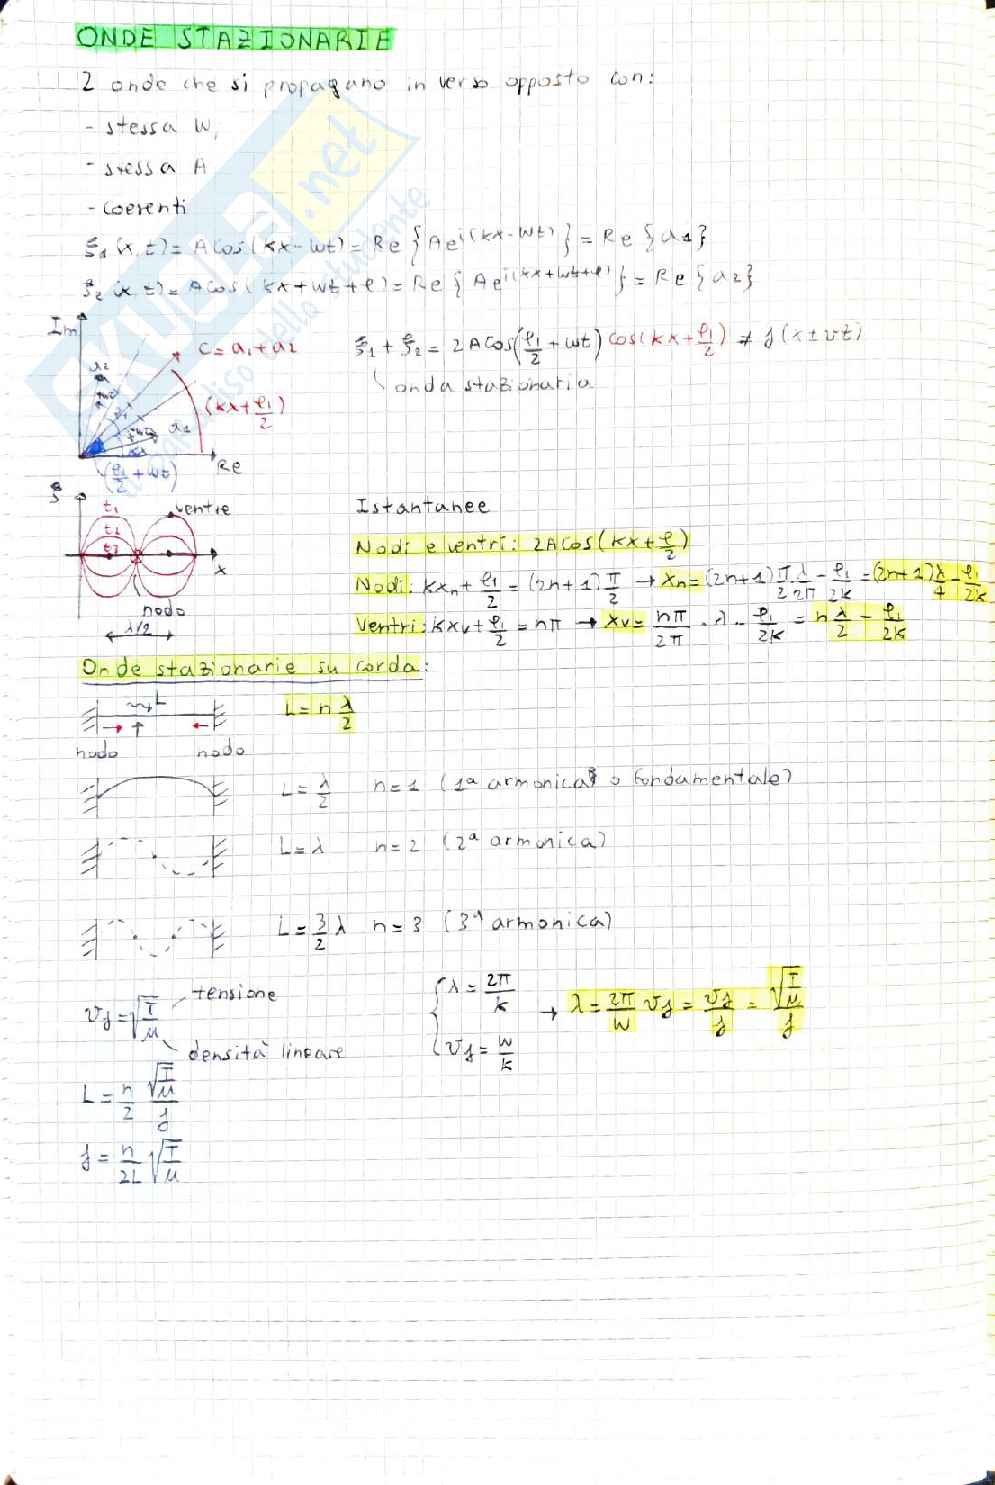 ONDE STAZIONARIE
2 onde che si propagano in verso opposto con:
- stessa ω,
- stessa A
- coerenti
ξ₁(x,t) = A cos(kx - ωt) = Re{Ae^i(kx - ωt)} = Re{a₁}
ξ₂(x,t) = A cos(kx + ωt + φ) = Re{Ae^i(kx + ωt + φ)} = Re{a₂}
Im
c = a₁ + a₂
a₂
(kx + φ₁/2)
a₁
Re
(φ₁/2 + ωt)
ξ₁ + ξ₂ = 2A cos(φ₁/2 + ωt) cos(kx + φ₁/2) ≠ f(x ± vt)
onda stazionaria
ξ
t₁
t₂
t₃
ventre
x
nodo
λ/2
Istantanee
Nodi e ventri: 2A cos(kx + φ/2)
Nodi: kxₙ + φ₁/2 = (2n+1) π/2 → xₙ = (2n+1) π/2 λ/2π - φ₁/2k = (2n+1) λ/4 - φ₁/2k
Ventri: kxᵥ + φ₁/2 = nπ → xᵥ = nπ/2π · λ - φ₁/2k = n λ/2 - φ₁/2k
Onde stazionarie su corda:
L
L = n λ/2
nodo nodo
L = λ/2 n = 1 (1ª armonica o fondamentale)
L = λ n = 2 (2ª armonica)
L = 3/2 λ n = 3 (3ª armonica)
v_f = √(T/μ)
tensione
densità lineare
{ λ = 2π/k
{ v_f = ω/k
→ λ = 2π/ω v_f = v_f/f = √(T/μ)/f
L = n/2 √(T/μ)/f
f = n/2L √(T/μ)
SKUOLA.net